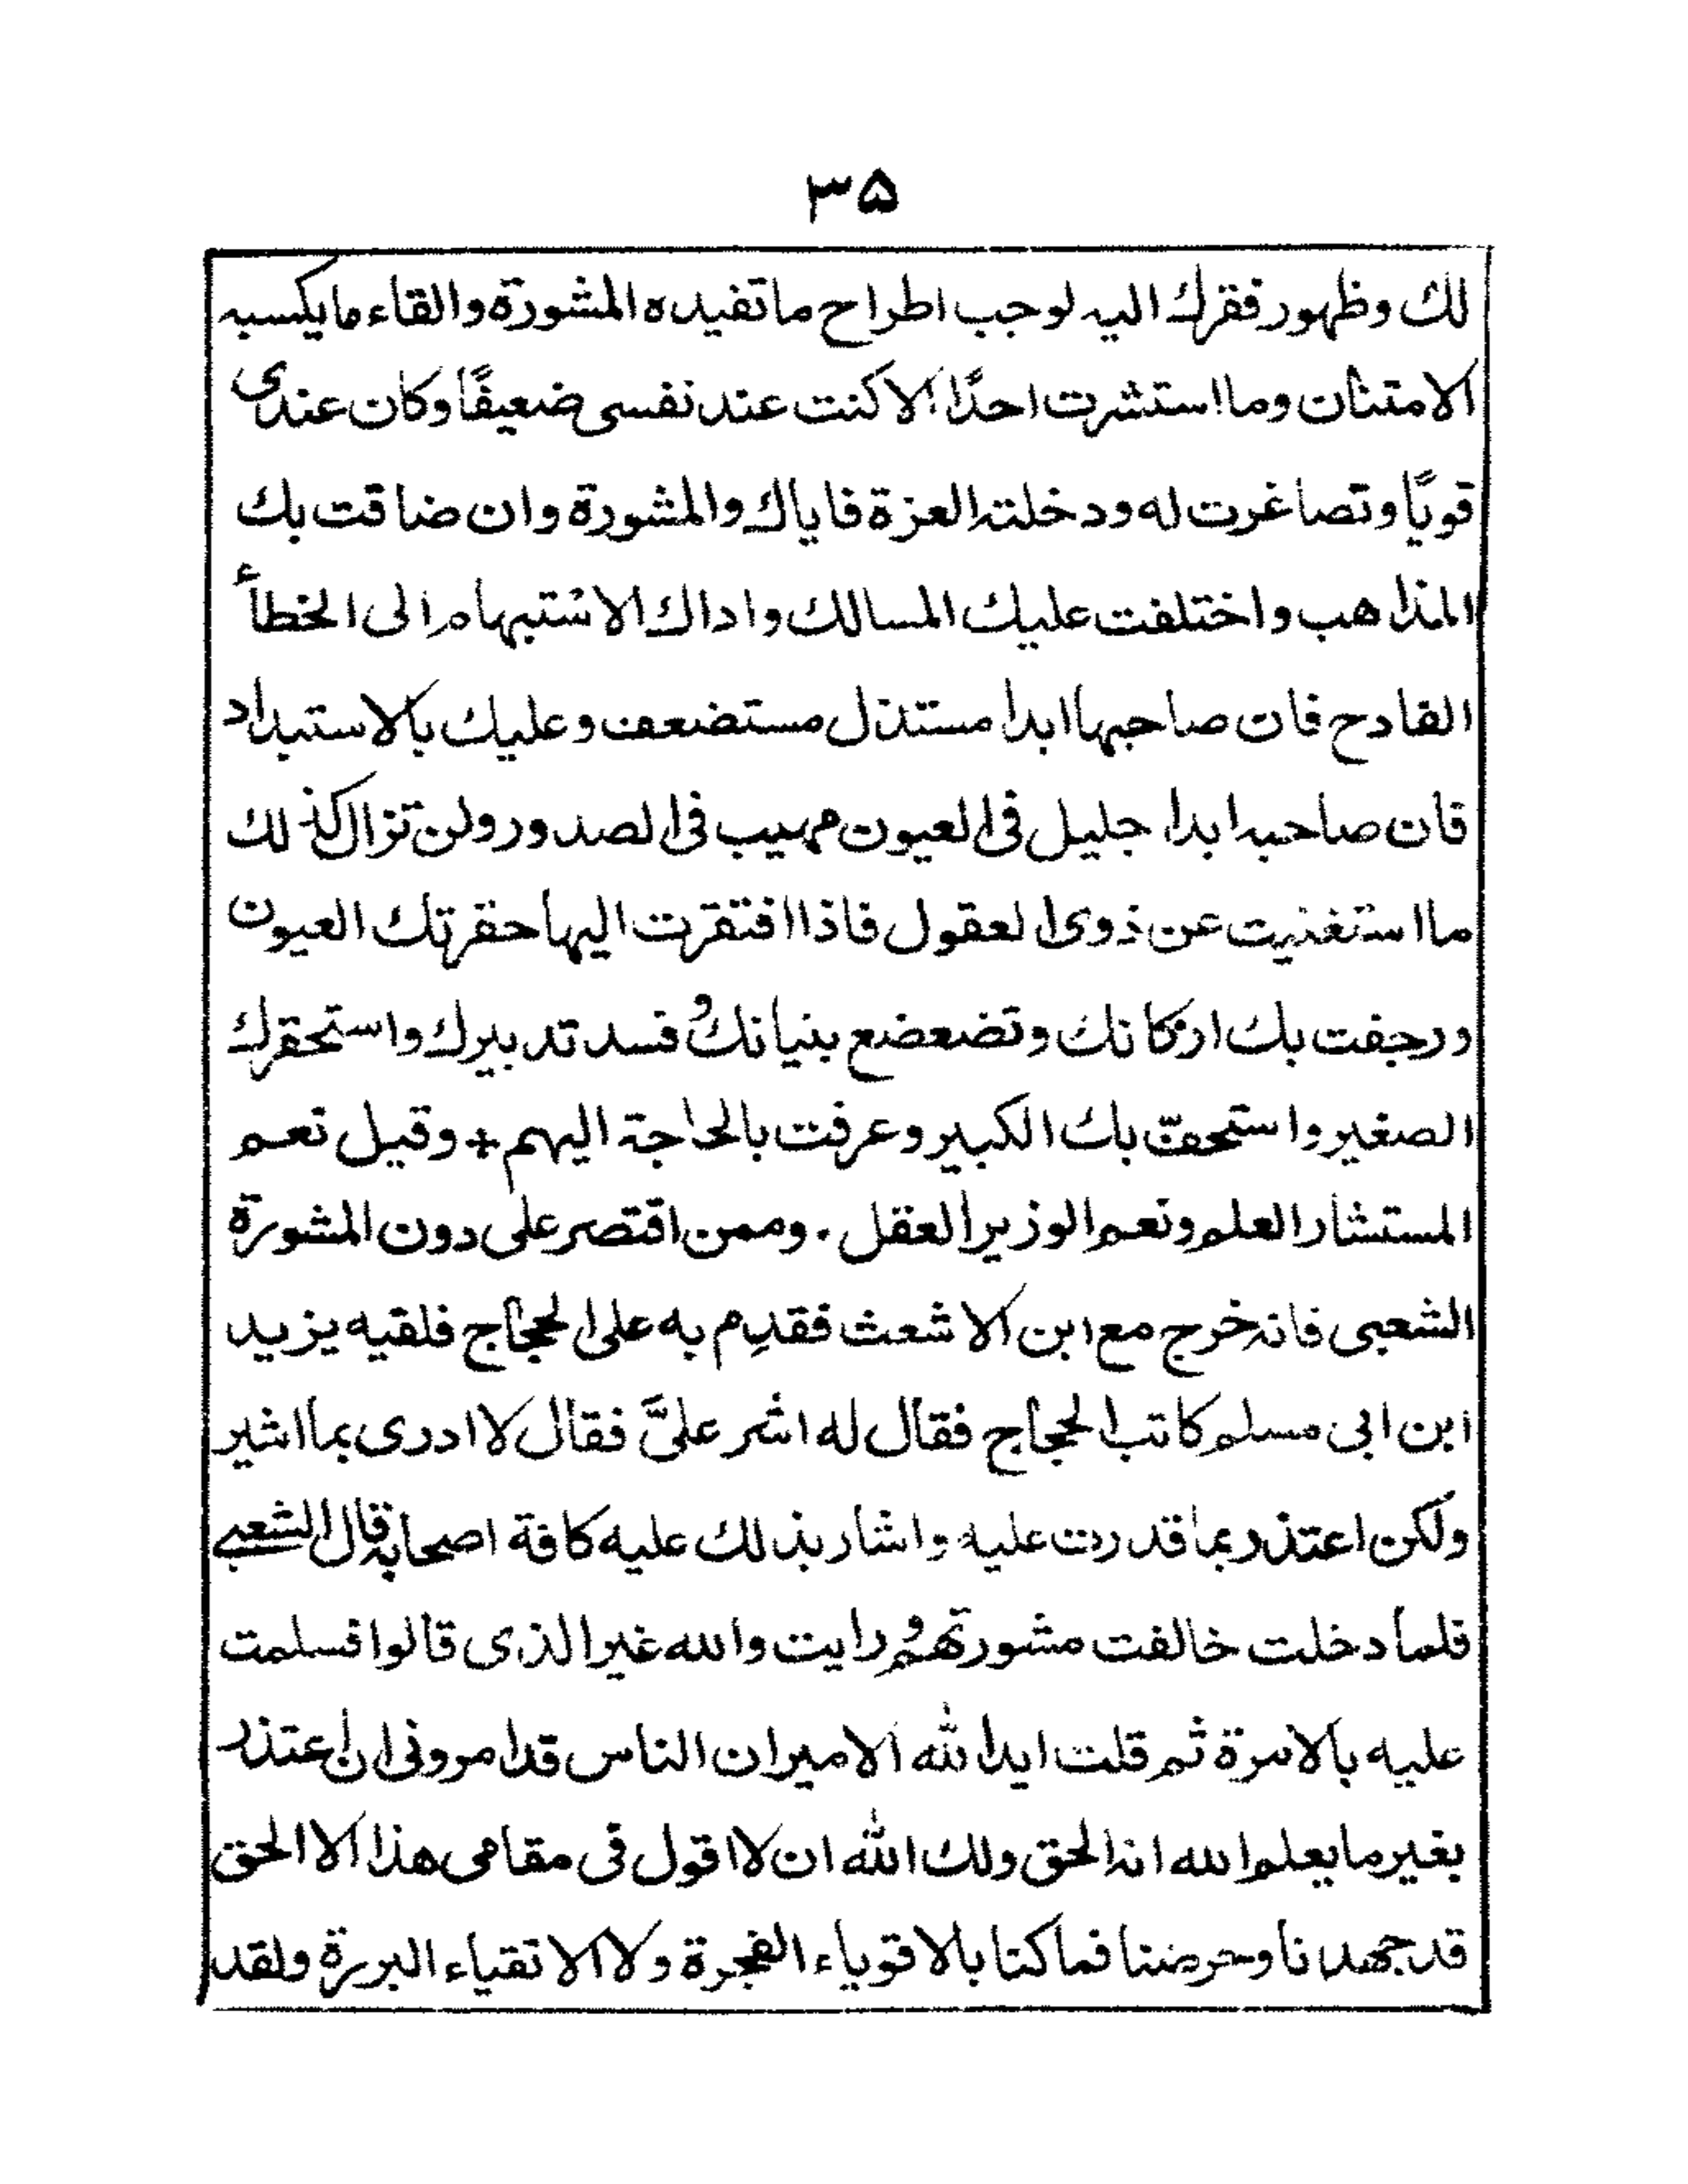 ۳۵
لك وظهور فقرك اليه لوجب اطراح ماتفيده المشورة والقاء مايكسبه
الامتنان وما استشرت احدًا الا كنت عند نفسى ضعيفًا وكان عندى
قويًا وتصاغرت له ودخلته العزة فاياك والمشورة وان ضاقت بك
المذاهب واختلفت عليك المسالك واداك الاشتبهام الى الخطأء
القادح فان صاحبها ابدا مستذل مستضعف وعليك بالاستبداد
فان صاحبه ابدا جليل فى العيون مهيب فى الصدور ولن تزال كذلك
ما استغنيت عن ذوى العقول فاذا افتقرت اليها حقرتك العيون
ورجفت بك اركانك وتضعضع بنيانك و فسد تدبيرك واستحقرك
الصغير واستخفّ بك الكبير وعرفت بالحاجة اليهم + وقيل نعم
المستشار العلم ونعم الوزير العقل ۔ وممن اقتصر على دون المشورة
الشعبى فانه خرج مع ابن الاشعث فقدِم به على الحجاج فلقيه يزيد
ابن ابى مسلم كاتب الحجاج فقال له اشر علىَّ فقال لا ادرى بما اشير
ولكن اعتذر بما قدرت عليه واشار بذلك عليه كافة اصحابه قال الشعبى
فلما دخلت خالفت مشورتهم و رايت والله غير الذى قالوا فسلمت
عليه بالامرة ثم قلت ايد الله الامير ان الناس قد امرونى ان اعتذر
بغير ما يعلم الله انه الحق ولك الله ان لا اقول فى مقامى هذا الا الحق
قد جهدنا وحرضنا فما كنا بالاقوياء الفجرة ولا الاتقياء البررة ولقد